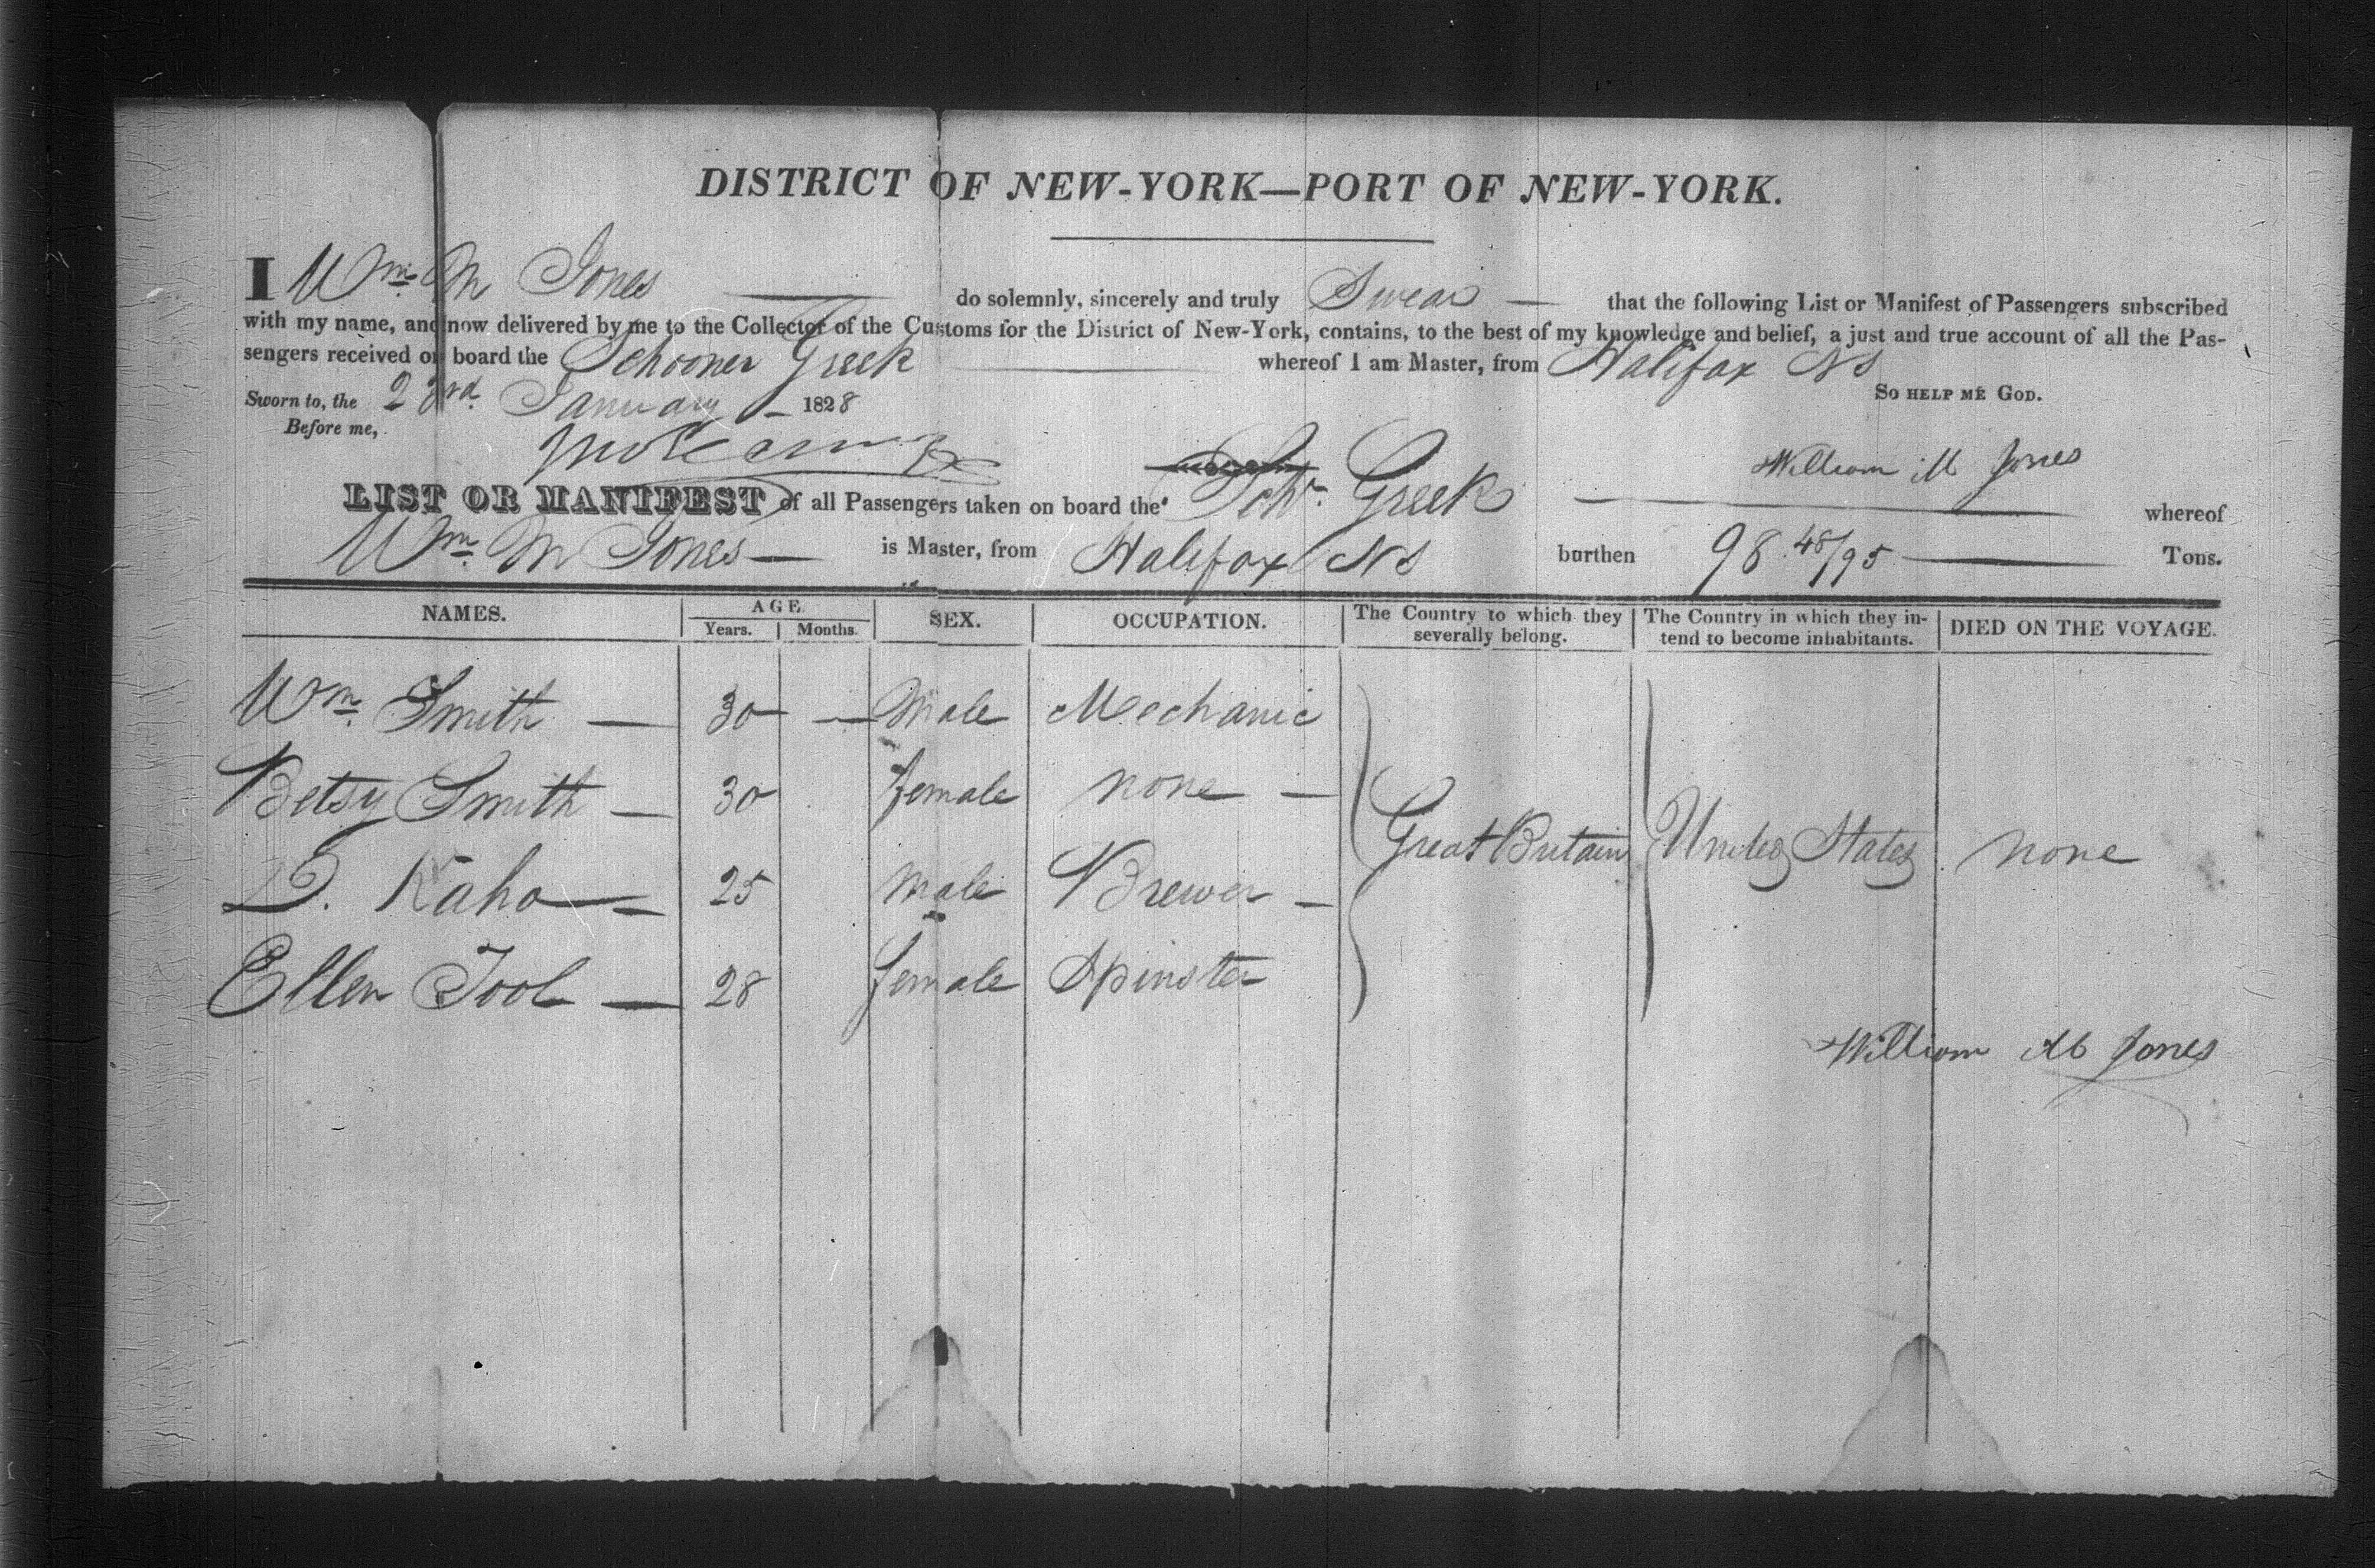 DISTRICT OF NEW-YORK—PORT OF NEW-YORK.
I Wm. M Jones — do solemnly, sincerely and truly Swear — that the following List or Manifest of Passengers subscribed
with my name, and now delivered by me to the Collector of the Customs for the District of New-York, contains, to the best of my knowledge and belief, a just and true account of all the Pas-
sengers received on board the Schooner Greek — whereof I am Master, from Halifax NS
Sworn to, the 23rd January – 1828 SO HELP ME GOD.
Before me,
William M Jones
LIST OR MANIFEST of all Passengers taken on board the Schr. Greek — whereof
Wm. M Jones — is Master, from Halifax NS burthen 98.48/95 — Tons.
NAMES. AGE. SEX. OCCUPATION. The Country to which they severally belong. The Country in which they in-tend to become inhabitants. DIED ON THE VOYAGE.
Years. Months.
Wm. Smith — 30 — Male Mechanic
Betsy Smith — 30 female none —
Great Britain United States none
D. Kaho — 25 Male Brewer —
Ellen Tool — 28 female Spinster
William M Jones